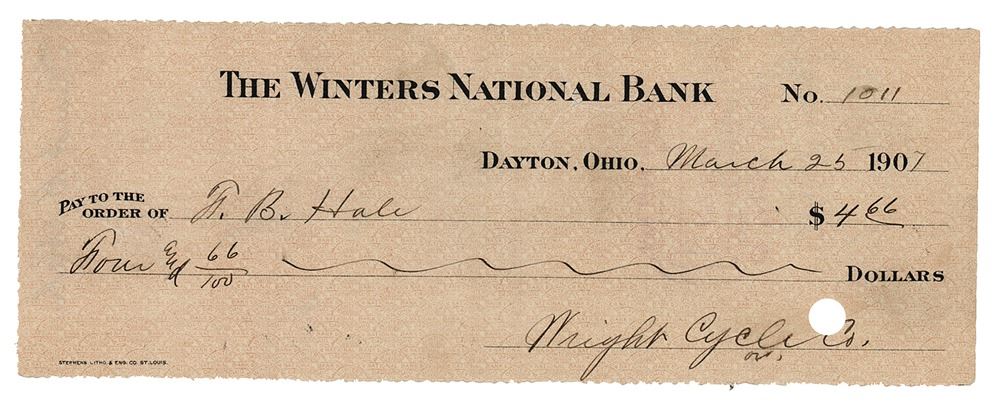 THE WINTERS NATIONAL BANK No. 1011
DAYTON, OHIO, March 25 1907
PAY TO THE ORDER OF F. B. Hale $4 66
Four & 66/100 DOLLARS
Wright Cycle Co.
STEPHENS LITHO. & ENG. CO. ST. LOUIS.